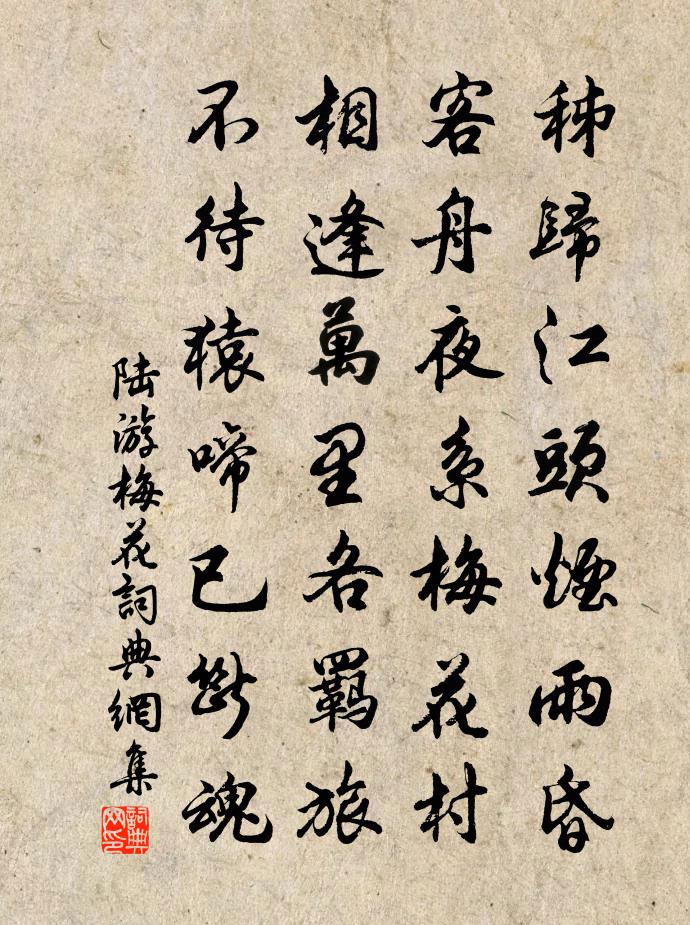 秭歸江頭煙雨昏
客舟夜系梅花村
相逢萬里各羈旅
不待猿啼已斷魂
陸游梅花詞典網集
詞典网印